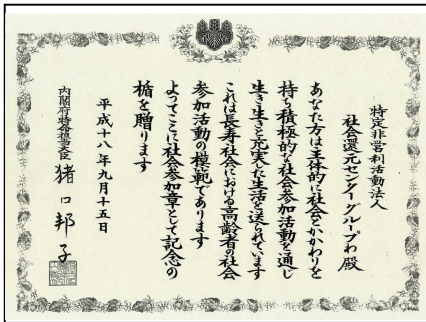 特定非営利活動法人
社会還元センターグループわ 殿
あなた方は主体的に社会とかかわりを
持ち積極的な社会参加活動を通じ
生き生きと充実した生活を送られています
これは長寿社会における高齢者の社会
参加活動の模範であります
よってここに社会参加章として記念の
楯を贈ります
平成十八年九月十五日
内閣府特命担当大臣 猪口邦子